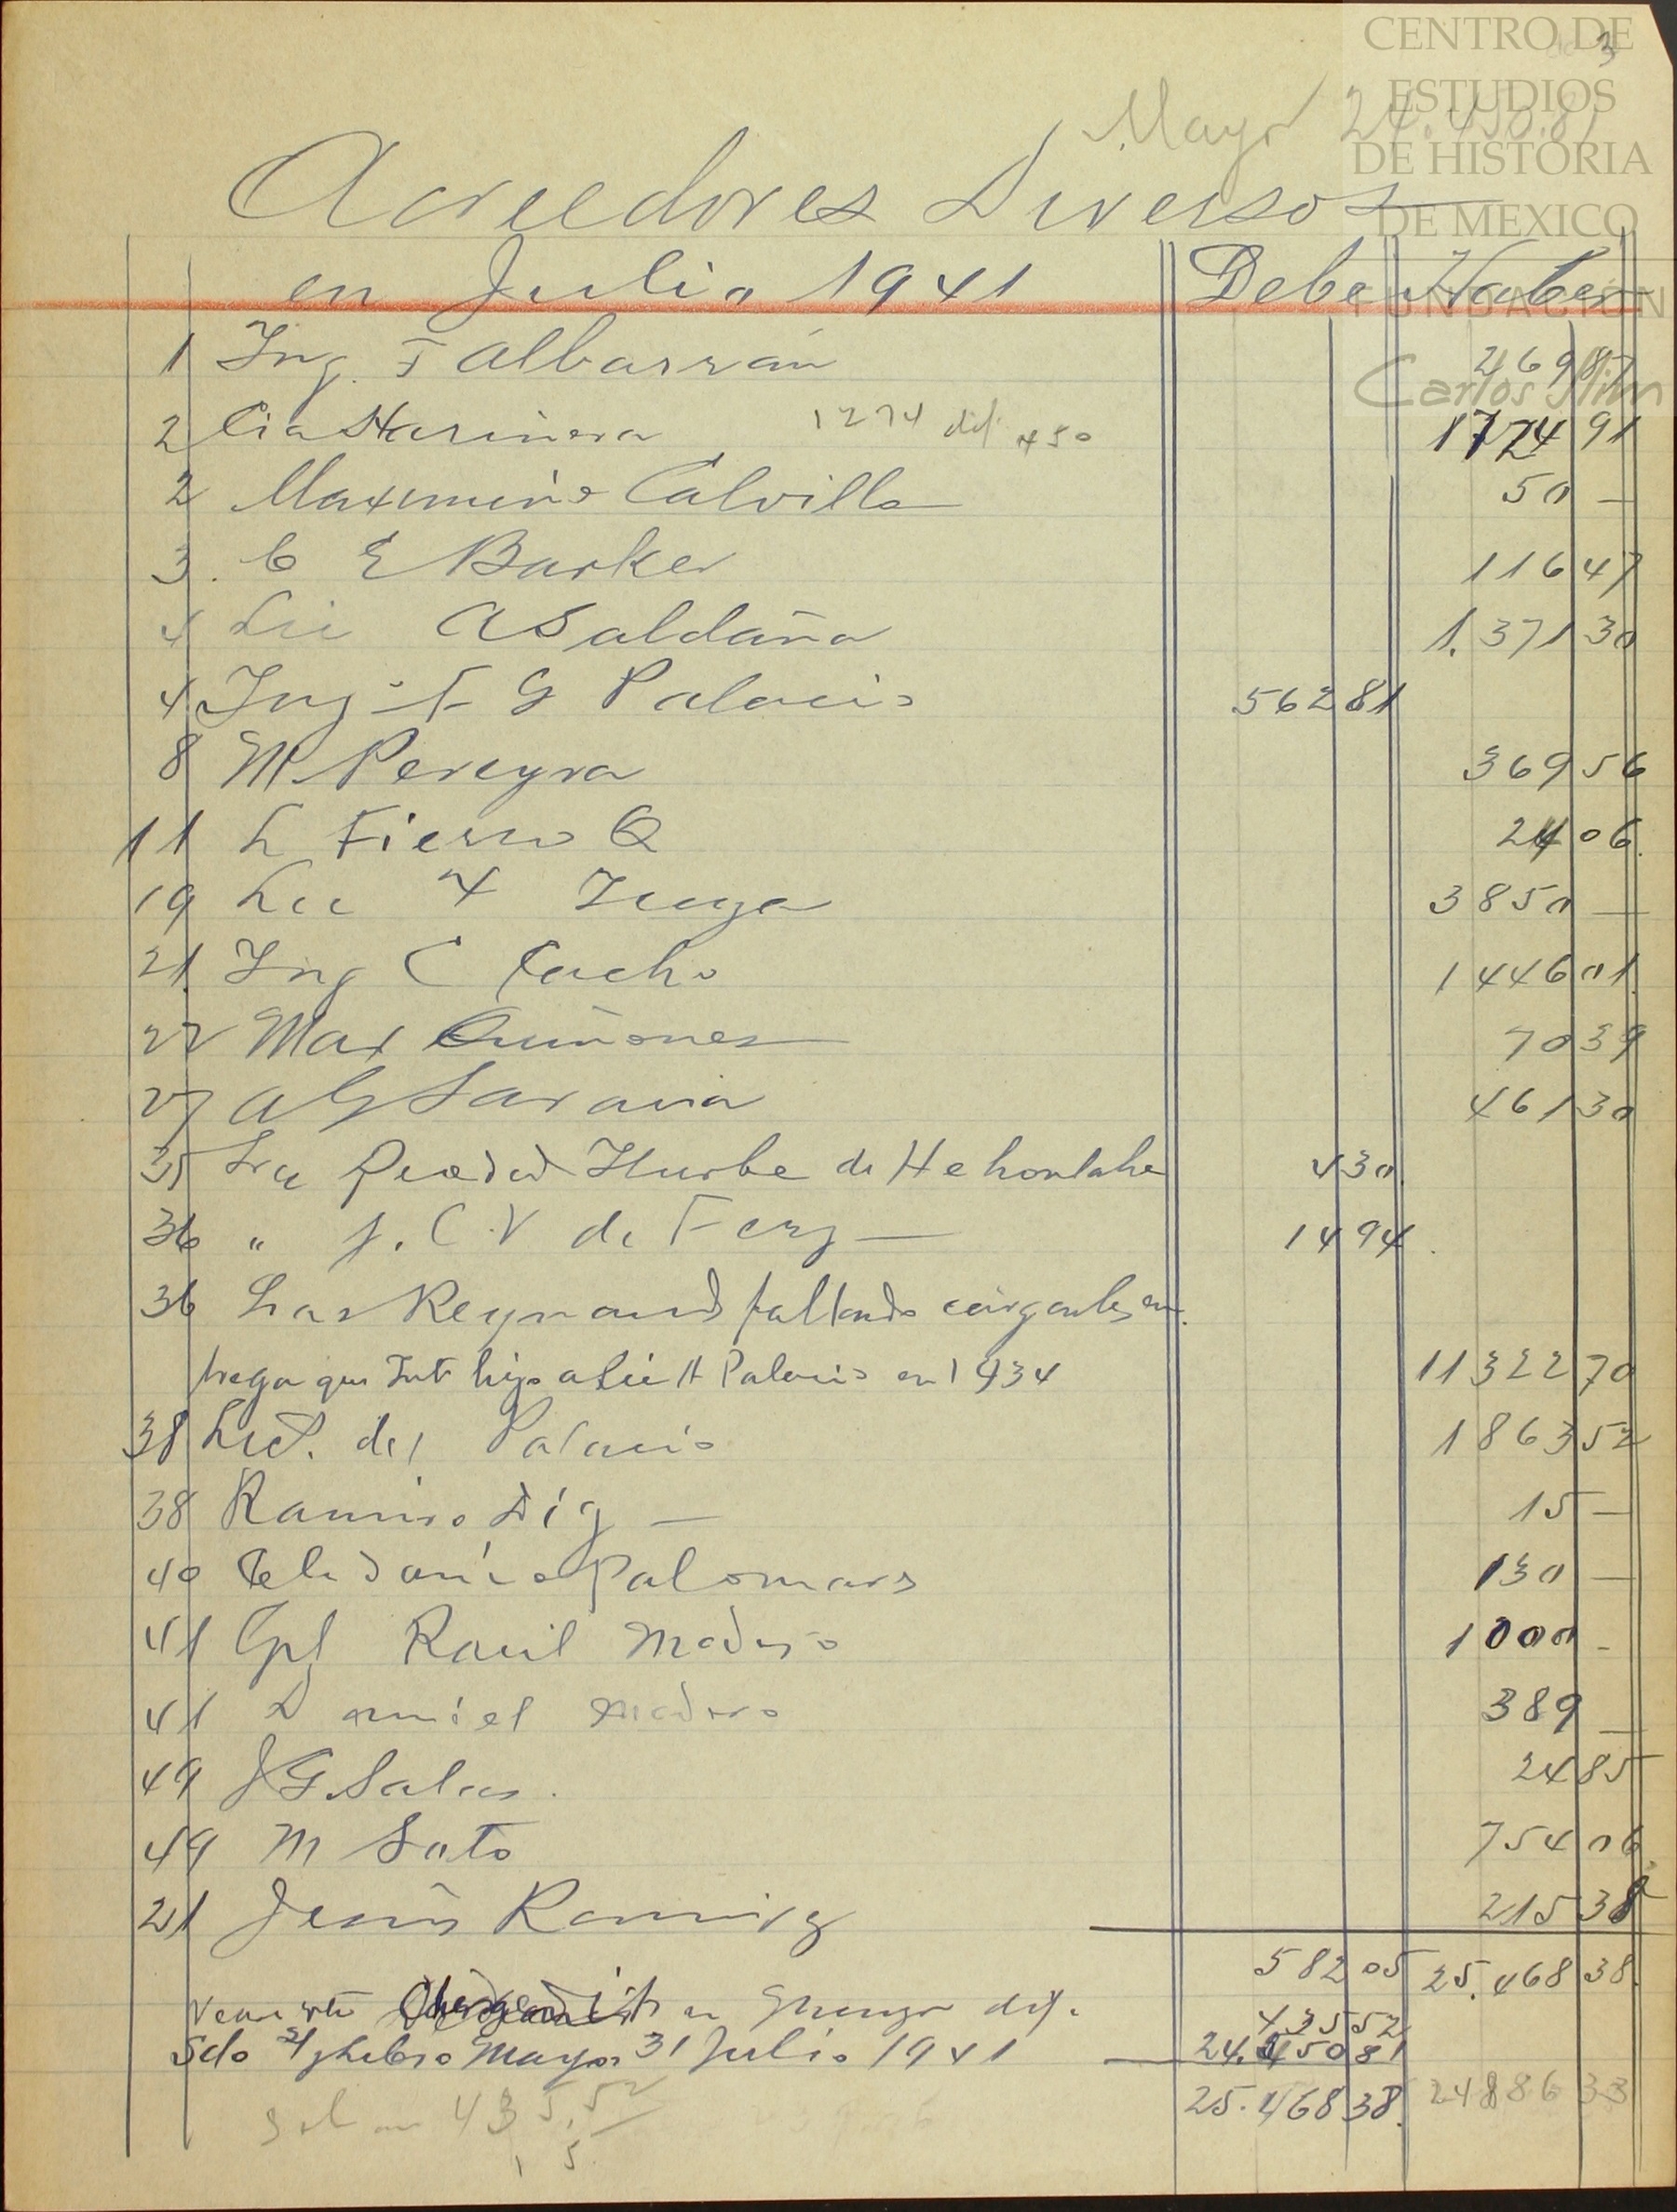 CENTRO DE
ESTUDIOS
DE HISTORIA
DE MEXICO
FUNDACIÓN
Carlos Slim
3
Mayor 24.450.81
Acreedores Diversos
en Julio 1941 Debe Haber
1 Ing. F Albarrán 269 87
2 Cia Harinera 1274 dif 450 1724 91
2 Maximino Calvillo 50 —
3. C E Barker 116 47
4 Lic A Saldaña 1.371 30
4 Ing F G Palacio 562 81
8 M Pereyra 369 56
11 L Fierro Q 24 06
19 Lic F 3850 —
21 Ing C Cacho 1446 01
22 Max Quiñones 70 39
27 A G Saravia 461 30
35 Sra de 4 30
36 " J. C. V de Ferz — 14 94
36 Reynaud faltando
que hizo a Lic A Palacio en 1934 11322 70
38 Luz del Palacio 1863 52
38 Ramiro Díz — 15 —
40 Celedonio Palomares 130 —
41 Gpl Raúl Madero 1000 -
41 Daniel Madero 389 —
49 J G Salas 24 85
49 M Soto 754 06
21 Jesús Ramirz 215 38
582 05 25.468 38
en dif. 435 52
Sdo s/ Libro Mayor 31 Julio 1941 24.450 81
25.468 38 24886 33
435.52